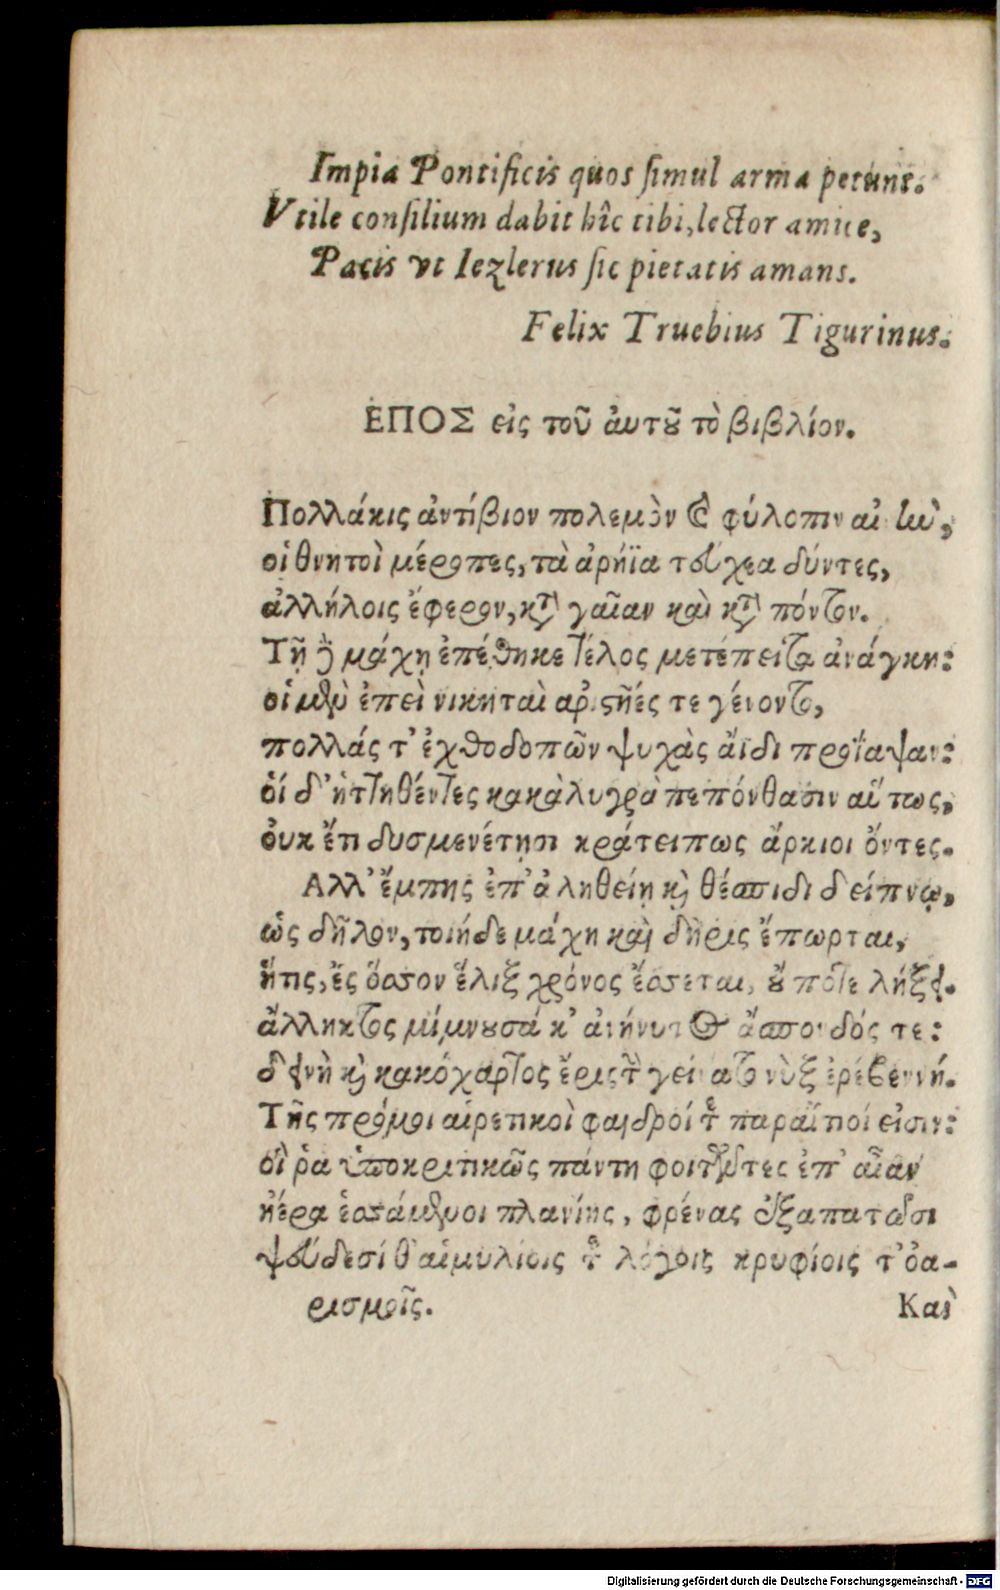 Impia Pontificis quos ſimul arma petunt.
Vtile conſilium dabit hîc tibi, lector amice,
Pacis vt Iezlerus ſic pietatis amans.
Felix Truebius Tigurinus.
ΕΠΟΣ εἰς τοῦ ἀυτȣ͂ τὸ βιβλίον.
Πολλάκις ἀντίβιον πολεμὸν καὶ φύλοπιν αἰνὴν,
οἱ θνητοὶ μέροπες, τὰ ἀρήϊα τεύχεα δύντες,
ἀλλήλοις ἔφερον, κατὰ γαῖαν καὶ κατὰ πόντον.
Τῇ δὲ μάχῃ ἐπέθηκε τέλος μετέπειτα ἀνάγκη:
οἱ μὲν ἐπεὶ νικηταὶ ἀριστῆές τε γένοντο,
πολλάς τ' ἐχθοδοπῶν ψυχὰς ἄϊδι προΐαψαν:
ὁί δ' ἡττηθέντες κακὰ λυγρὰ πεπόνθασιν αὔτως,
ὀυκ ἔτι δυσμενέτησι κράτει πως ἄρκιοι ὄντες.
Αλλ' ἔμπης ἐπ' ἀληθείῃ καὶ θέσπιδι δείπνῳ,
ὡς δῆλον, τοιήδε μάχη καὶ δῆρις ἔπωρται,
ἥτις, ἐς ὅσσον ἕλιξ χρόνος ἔσσεται, ȣ̓ ποτε λήξει.
ἄλληκτος μίμνȣσά κ' ἀνήνυτος ἄσπονδός τε:
δεινὴ καὶ κακόχαρτος ἔρις τε γείνατο νὺξ ἐρεβεννή.
Τῆς πρόμοι αἱρετικοὶ φαιδροί τε παραίτιοί εἰσιν:
οἵ ῥα ὑποκριτικῶς πάντη φοιτῶντες ἐπ' αἶαν
ἠέρα ἑσσάμενοι πλανίης, φρένας ἐξαπατῶσι
ψεύδεσί θ' αἱμυλίοις τε λόγοις κρυφίοις τ' ὀα-
ρισμοῖς.
Καὶ
Digitalisierung gefördert durch die Deutsche Forschungsgemeinschaft - DFG